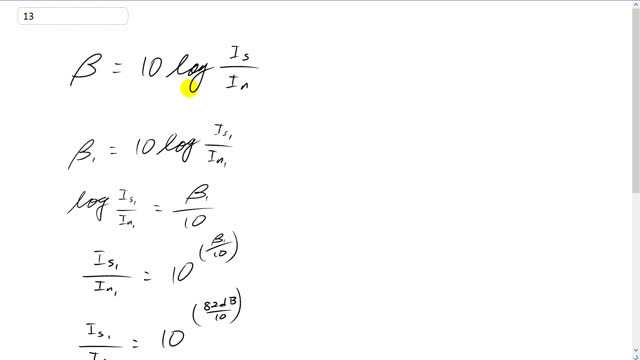 13
β = 10 log I_s / I_n
β_1 = 10 log I_s_1 / I_n_1
log I_s_1 / I_n_1 = β_1 / 10
I_s_1 / I_n_1 = 10^(β_1 / 10)
I_s_1 / I = 10^(82dB / 10)